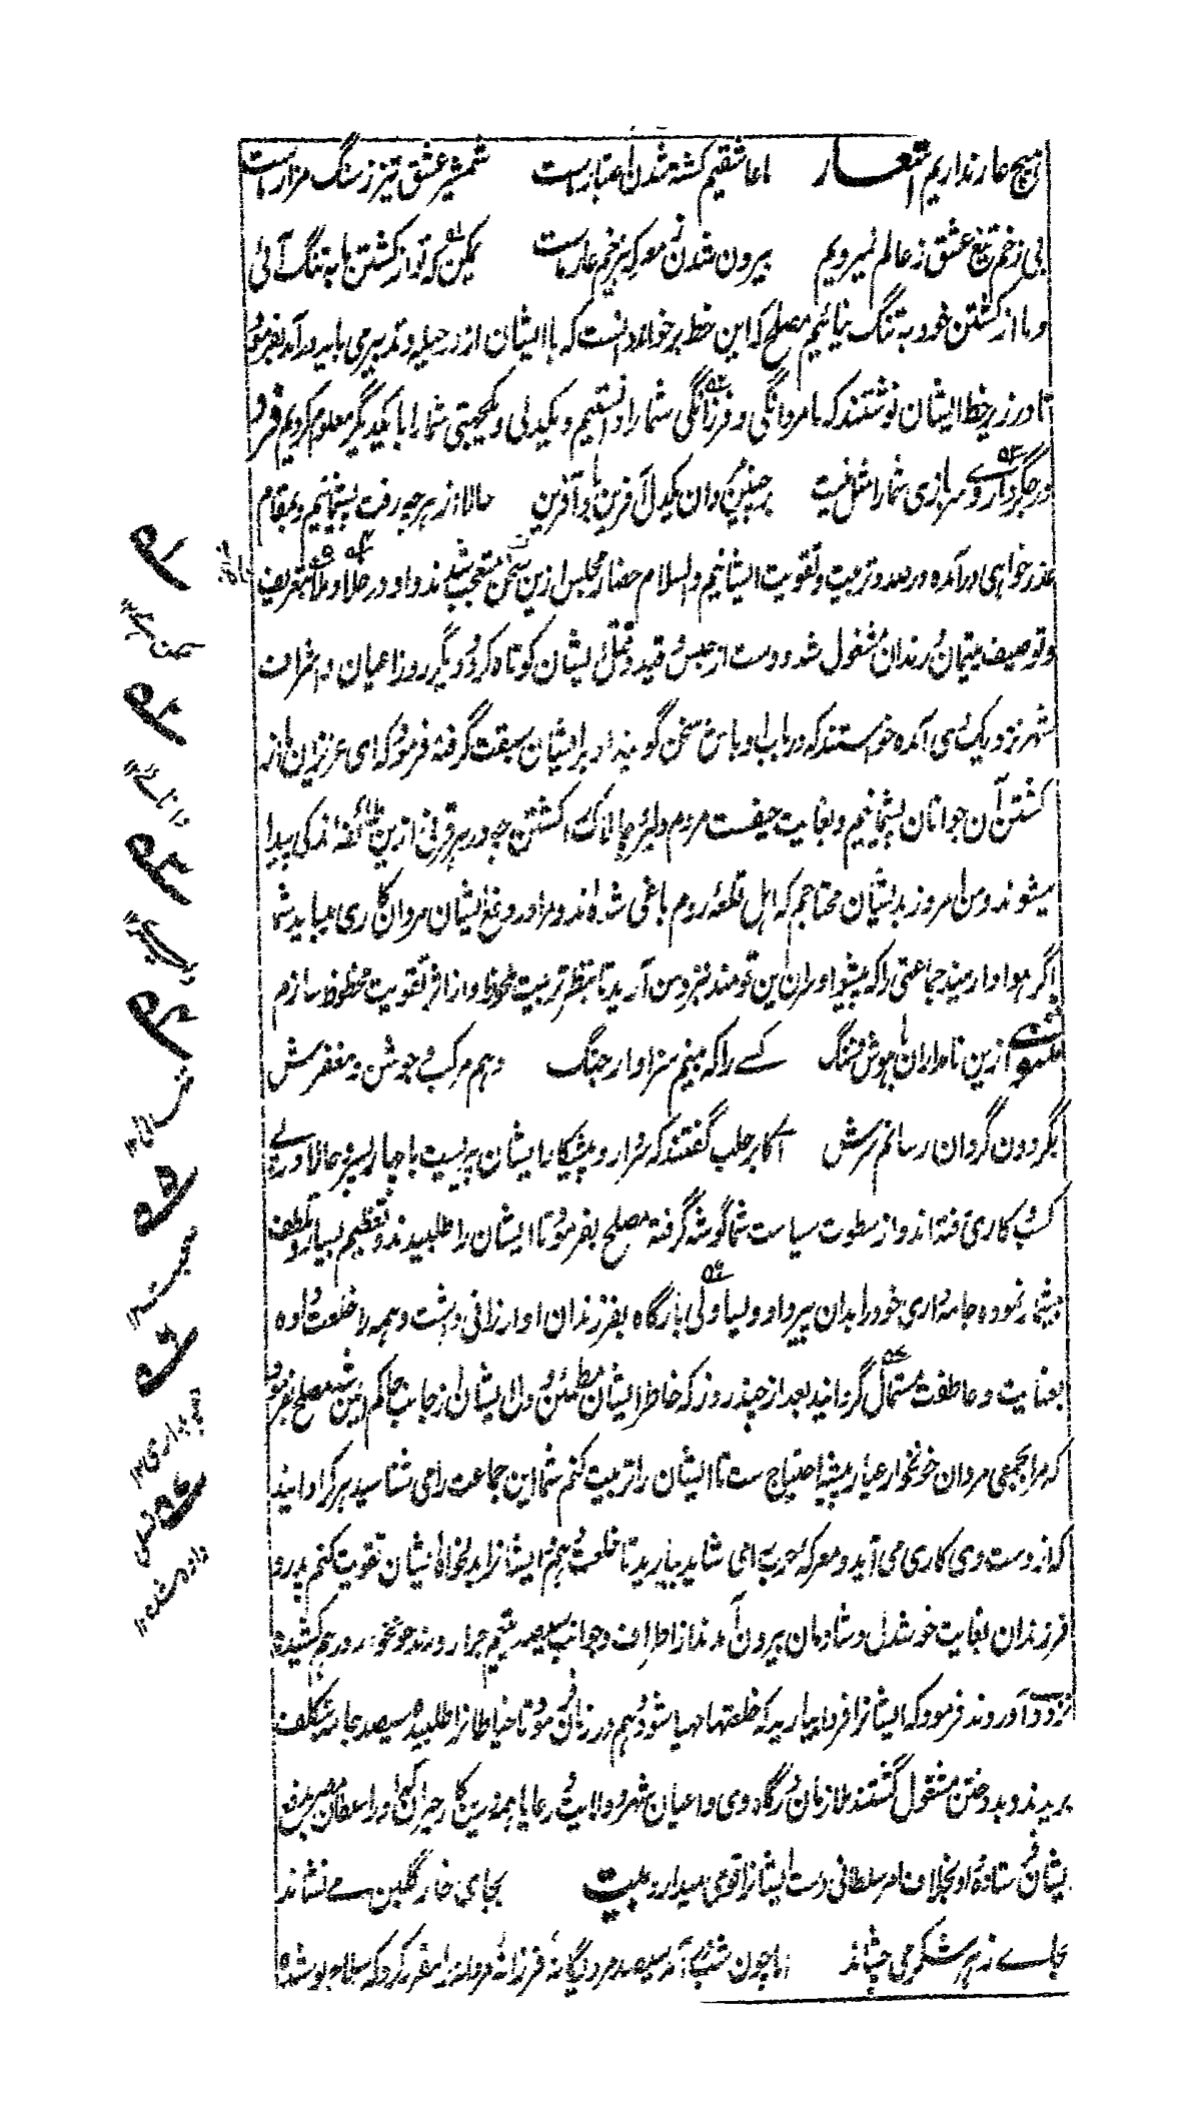 ازیچ عار نداریم اشعار ما عاشقیم کشته شدن اعتبار ماست شمشیر عشق تیز ز سنگ مزار ماست
بی زخم تیغ عشق ز عالم نمیرویم بیرون شدن ز معرکه بیزخم عار ماست ممکن که تو از کشتن ما به تنگ آئی
و ما از کشتن خود به تنگ نیائیم مصلح که این خط بر خواند دانست که با ایشان از در حیله و تدبیر می باید درآمد بفرمود
تا در زیر خط ایشان نوشتند که ما مردانگی و فرزانگی شما را دانستیم و یکدلی و یکجهتی شما را با یکدیگر معلوم کردیم فرد
در جگرداری و سربازی شما را مثل نیست بر چنین گردان یکدل آفرین باد آفرین حالا از هر چه رفت پشیمانیم و بمقام
عذرخواهی درآمده در صدد تربیت و تقویت ایشانیم والسلام حضار مجلس ازین سخن متعجب شدند و او در خلا و ملا بتعریف
و توصیف رندان مشغول شد و دست از حبس و قید و قتل ایشان کوتاه کرد و دیگر روز اعیان و اشراف
شهر نزدیک وی آمده خواستند که در باب اوباش سخن گویند او بر ایشان سبقت گرفته فرمود که ای عزیزان من از
کشتن آن جوانان پشیمانم و بغایت حیفست مردم دلیر چالاک را کشتن چه در هر قرنی ازین طائفه اندکی پیدا
میشوند و من امروز بدیشان محتاجم که اهل قلعه روم باغی شده اند و مرا در دفع ایشان مردان کاری میباید شما
اگر هوادارمید جماعتی را که پیشوا و سران این قومند نزد من آرید تا بنظر تربیت ملحوظ و از اثر تقویت محظوظ سازم
مثنوی ازین نامداران باهوش و هنگ کسے را که بینم سزاوار جنگ دهم مرکب و جوشن و مغفرش
بگردون گردان رسانم سرش اکابر حلب گفتند که سردار و پیشکار ایشان پیریست با چار پسر و حالا در پے
کسب کاری رفته اند و از سطوت سیاست شما گوشه گرفته مصلح بفرمود تا ایشان را طلبیدند و تعظیم بسیار و تلطف
بیشمار نموده جامه داری خود را بدان پیر داد و یساولی بارگاه بفرزندان او ارزانی داشت و همه را خلعت داده
بعنایت و عاطفت مستمال گردانید بعد از چند روز که خاطر ایشان مطمئن و دل ایشان از جانب حاکم ایمن شد مصلح بفرمود
که مرا بجمعی مردان خونخوار عیار پیشه احتیاج ست تا ایشان را تربیت کنم شما این جماعت را می شناسید هر کرا دانید
که از دست وی کاری می آید و معرکه حرب را می شاید بیارید تا خلعت دهم و ایشانرا بدلخواه ایشان تقویت کنم پدر و
فرزندان بغایت خوشدل و شادمان بیرون آمدند از اطراف و جوانب سیصد یتیم جرار و رند خونخوار در هم کشیده
نزد وے آوردند فرمود که ایشانرا فردا بیارید که خلعتها مهیا شود و هم در زمان فرمود تا خیاطانرا طلبیده سیصد جامه بتکلف
بریدند و بدوختن مشغول گشتند ملازمان درگاه وی و اعیان شهر و ولایت و رعایا همه درین کار حیران که او را سلطان مصر بدفع
ایشان فرستاده و او بخلاف امر سلطانی دست ایشانرا قوی میدارد بیت بجای خار گلبن مے نشاند
بجاے زهر شکر می چشاند اما چون شب درآمد سیصد مرد یگانه فرزانه مردانه را مقرر کرد که سلاح پوشیده